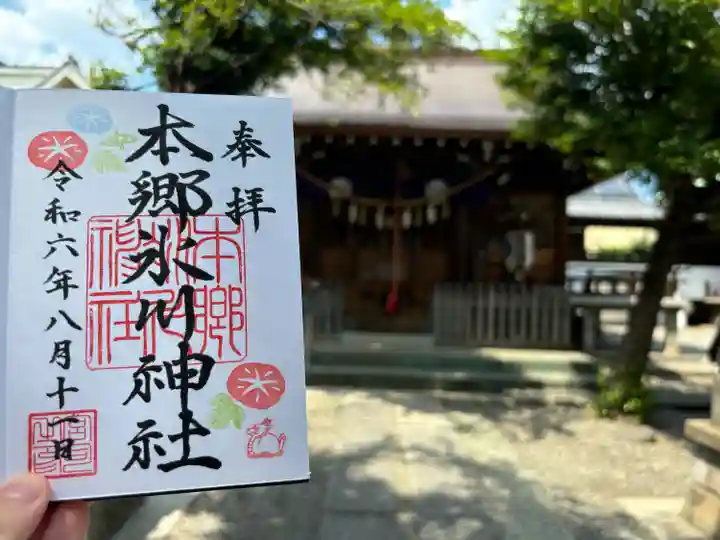 奉拝
本郷氷川神社
本郷氷川神社
令和六年八月十一日